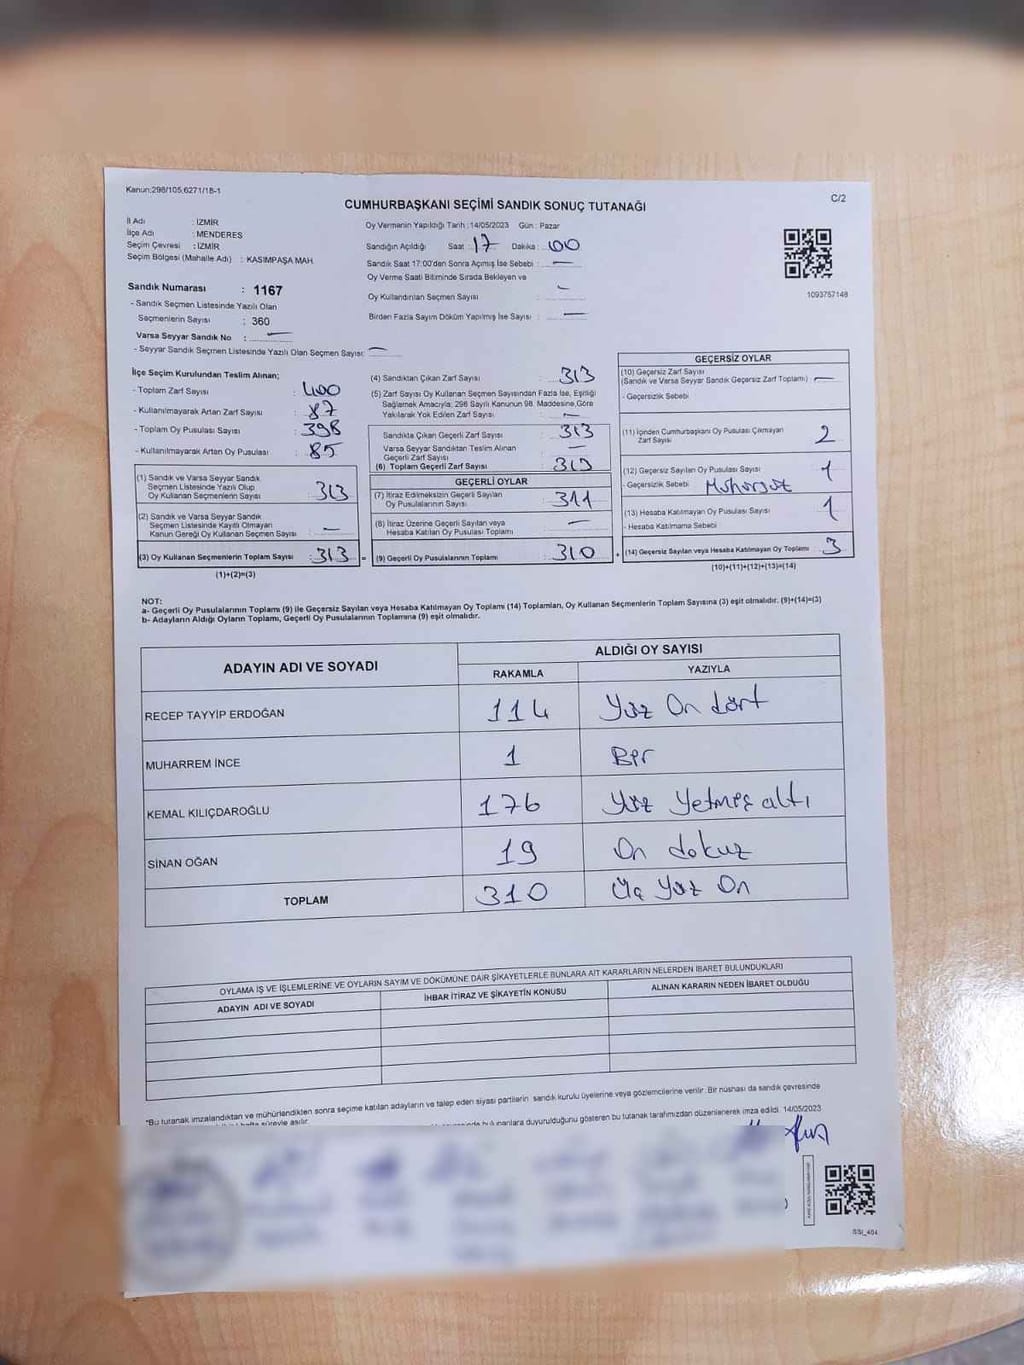 Kanun:298/105,6271/18-1
C/2
CUMHURBAŞKANI SEÇİMİ SANDIK SONUÇ TUTANAĞI
İl Adı : İZMİR
İlçe Adı : MENDERES
Seçim Çevresi : İZMİR
Seçim Bölgesi (Mahalle Adı) : KASIMPAŞA MAH.
Sandık Numarası : 1167
- Sandık Seçmen Listesinde Yazılı Olan
Seçmenlerin Sayısı : 360
Varsa Seyyar Sandık No : —
- Seyyar Sandık Seçmen Listesinde Yazılı Olan Seçmen Sayısı: —
Oy Vermenin Yapıldığı Tarih :14/05/2023 Gün : Pazar
Sandığın Açıldığı Saat : 17 Dakika : 00
Sandık Saat 17:00'dan Sonra Açımış İse Sebebi : —
Oy Verme Saati Bitiminde Sırada Bekleyen ve
Oy Kullandırılan Seçmen Sayısı : —
Birden Fazla Sayım Döküm Yapılmış İse Sayısı : —
1093757148
İlçe Seçim Kurulundan Teslim Alınan;
- Toplam Zarf Sayısı : 400
- Kullanılmayarak Artan Zarf Sayısı : 87
- Toplam Oy Pusulası Sayısı : 398
- Kullanılmayarak Artan Oy Pusulası : 85
(1) Sandık ve Varsa Seyyar Sandık
Seçmen Listesinde Yazılı Olup
Oy Kullanan Seçmenlerin Sayısı : 313
(2) Sandık ve Varsa Seyyar Sandık
Seçmen Listesinde Kayıtlı Olmayan
Kanun Gereği Oy Kullanan Seçmen Sayısı : —
(3) Oy Kullanan Seçmenlerin Toplam Sayısı : 313 =
(1)+(2)=(3)
(4) Sandıktan Çıkan Zarf Sayısı : 313
(5) Zarf Sayısı Oy Kullanan Seçmen Sayısından Fazla İse, Eşitliği
Sağlamak Amacıyla; 298 Sayılı Kanunun 98. Maddesine Göre
Yakılarak Yok Edilen Zarf Sayısı : —
Sandıkta Çıkan Geçerli Zarf Sayısı : 313
Varsa Seyyar Sandıktan Teslim Alınan
Geçerli Zarf Sayısı : —
(6) Toplam Geçerli Zarf Sayısı : 313
GEÇERLİ OYLAR
(7) İtiraz Edilmeksizin Geçerli Sayılan
Oy Pusulalarının Sayısı : 311
(8) İtiraz Üzerine Geçerli Sayılan veya
Hesaba Katılan Oy Pusulası Toplamı : —
(9) Geçerli Oy Pusulalarının Toplamı : 310 +
GEÇERSİZ OYLAR
(10) Geçersiz Zarf Sayısı
(Sandık ve Varsa Seyyar Sandık Geçersiz Zarf Toplamı) : —
- Geçersizlik Sebebi
(11) İçinden Cumhurbaşkanı Oy Pusulası Çıkmayan
Zarf Sayısı : 2
(12) Geçersiz Sayılan Oy Pusulası Sayısı : 1
- Geçersizlik Sebebi Mühürsüz
(13) Hesaba Katılmayan Oy Pusulası Sayısı : 1
- Hesaba Katılmama Sebebi
(14) Geçersiz Sayılan veya Hesaba Katılmayan Oy Toplamı : 3
(10)+(11)+(12)+(13)=(14)
NOT:
a- Geçerli Oy Pusulalarının Toplamı (9) ile Geçersiz Sayılan veya Hesaba Katılmayan Oy Toplamı (14) Toplamları, Oy Kullanan Seçmenlerin Toplam Sayısına (3) eşit olmalıdır. (9)+(14)=(3)
b- Adayların Aldığı Oyların Toplamı, Geçerli Oy Pusulalarının Toplamına (9) eşit olmalıdır.
ADAYIN ADI VE SOYADI ALDIĞI OY SAYISI
RAKAMLA YAZIYLA
RECEP TAYYİP ERDOĞAN 114 Yüz On dört
MUHARREM İNCE 1 Bir
KEMAL KILIÇDAROĞLU 176 Yüz Yetmiş altı
SİNAN OĞAN 19 On dokuz
TOPLAM 310 Üç Yüz On
OYLAMA İŞ VE İŞLEMLERİNE VE OYLARIN SAYIM VE DÖKÜMÜNE DAİR ŞİKAYETLERLE BUNLARA AİT KARARLARIN NELERDEN İBARET BULUNDUKLARI
ADAYIN ADI VE SOYADI İHBAR İTİRAZ VE ŞİKAYETİN KONUSU ALINAN KARARIN NEDEN İBARET OLDUĞU
*Bu tutanak imzalandıktan ve mühürlendikten sonra seçime katılan adayların ve talep eden siyasi partilerin sandık kurulu üyelerine veya gözlemcilerine verilir. Bir nüshası da sandık çevresinde
bulunanlara duyurulduğunu gösteren bu tutanak tarafımızdan düzenlenerek imza edildi. 14/05/2023